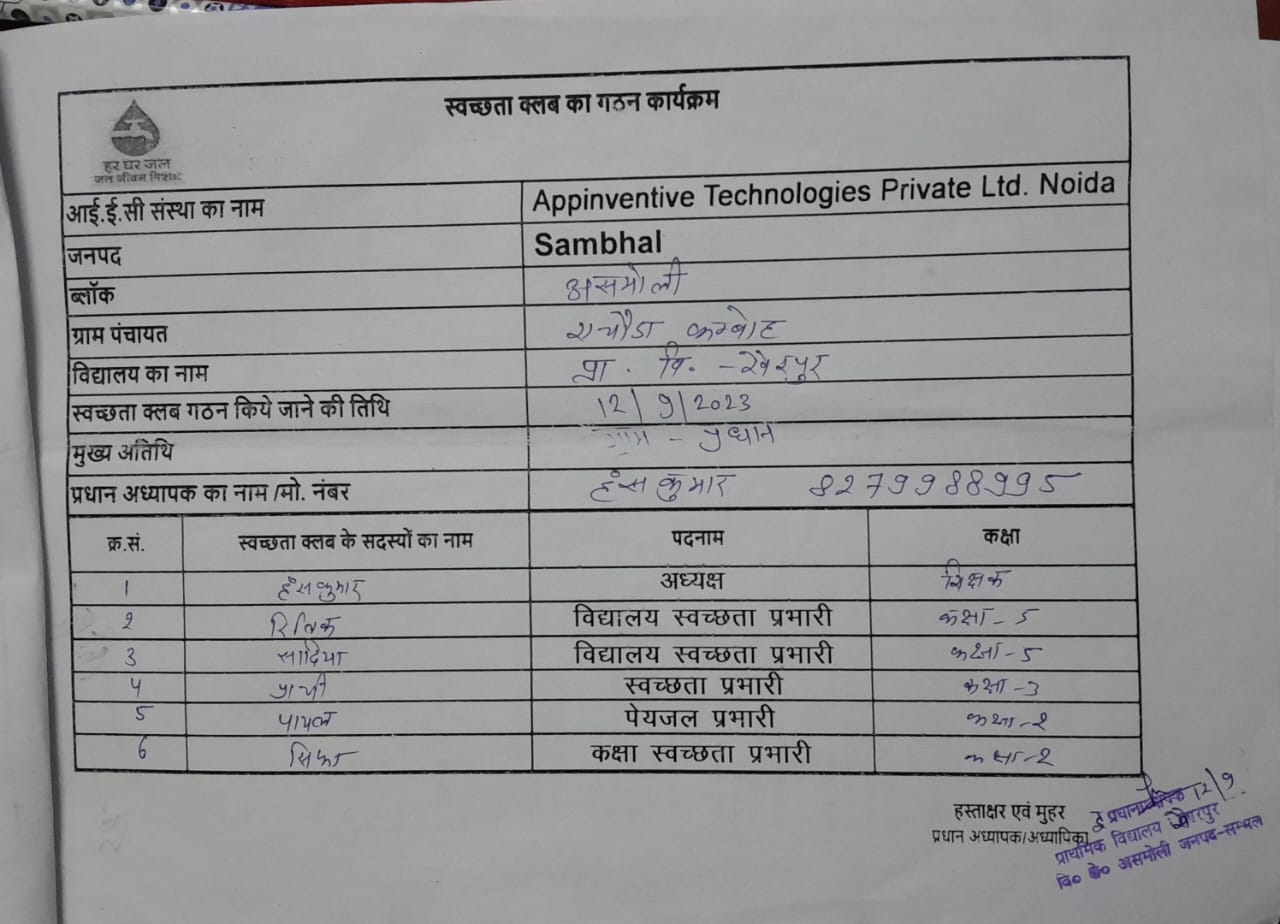 स्वच्छता क्लब का गठन कार्यक्रम
हर घर जल
जल जीवन मिशन
आई.ई.सी संस्था का नाम Appinventive Technologies Private Ltd. Noida
जनपद Sambhal
ब्लॉक असमोली
ग्राम पंचायत राचौडा कम्बोह
विद्यालय का नाम प्रा. वि. - खैरपुर
स्वच्छता क्लब गठन किये जाने की तिथि 12/9/2023
मुख्य अतिथि ग्राम - प्रधान
प्रधान अध्यापक का नाम /मो. नंबर हंस कुमार 8279988995
क्र.सं. स्वच्छता क्लब के सदस्यों का नाम पदनाम कक्षा
1 हंस कुमार अध्यक्ष शिक्षक
2 रितिक विद्यालय स्वच्छता प्रभारी कक्षा - 5
3 सादिया विद्यालय स्वच्छता प्रभारी कक्षा - 5
4 प्राची स्वच्छता प्रभारी कक्षा - 3
5 पायल पेयजल प्रभारी कक्षा - 2
6 कक्षा स्वच्छता प्रभारी कक्षा - 2
हस्ताक्षर एवं मुहर
प्रधान अध्यापक/अध्यापिका
12/9
प्राथमिक विद्यालय खैरपुर
वि० क्षे० असमोली जनपद-सम्भल